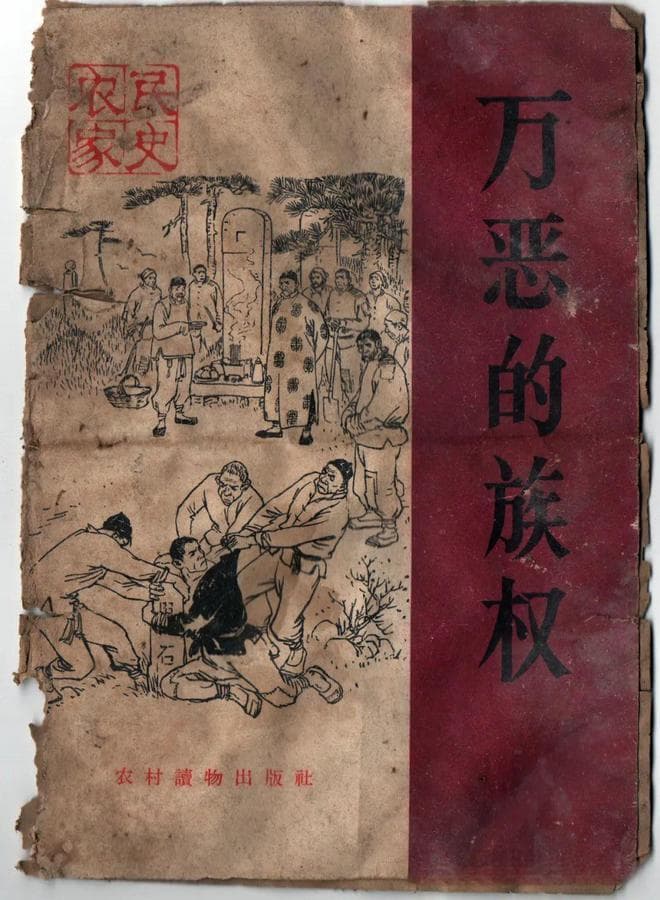 农民
家史
万恶的族权
石
农村讀物出版社